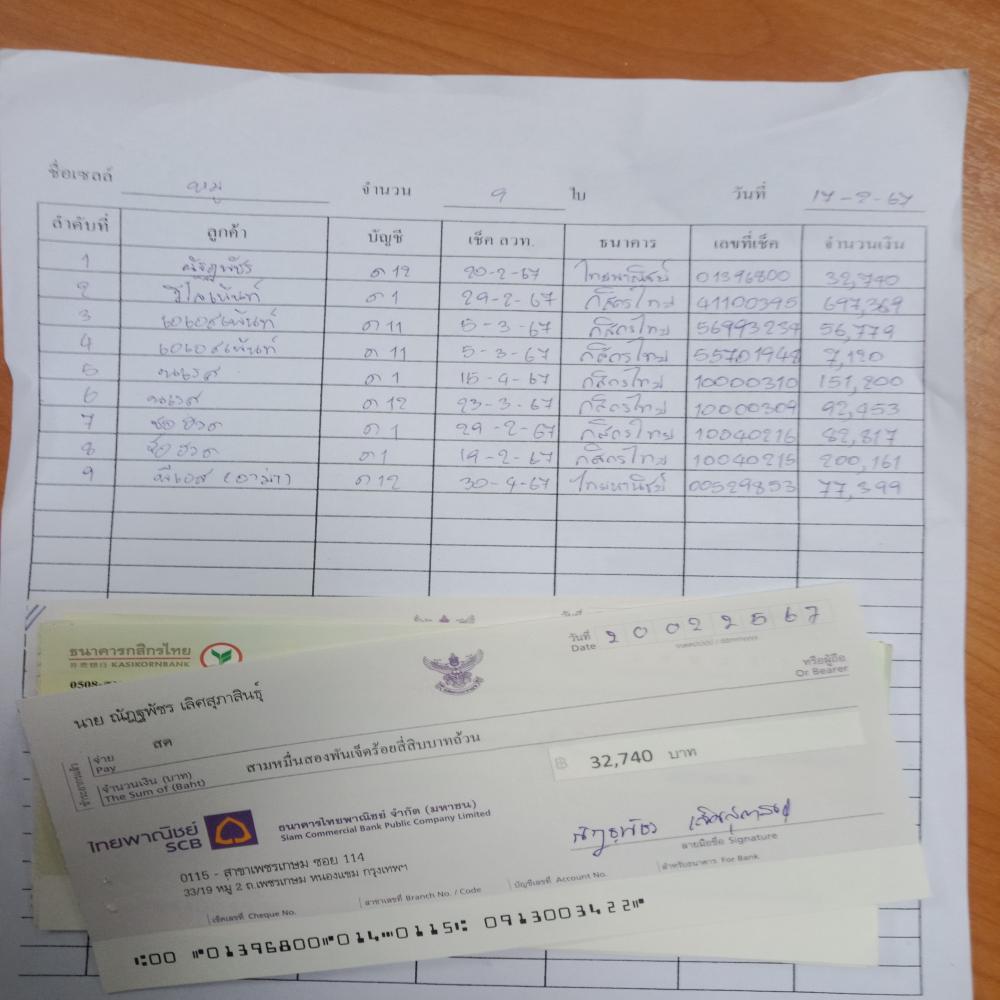 ชื่อเซลล์ หมู จำนวน 9 ใบ วันที่ 17-2-67
ลำดับที่ ลูกค้า บัญชี เช็ค ลวท. ธนาคาร เลขที่เช็ค จำนวนเงิน
1 ณัฏฐพัชร ด 12 20-2-67 ไทยพาณิชย์ 01396800 32,740
2 วิไลเพ้นท์ ด 1 29-2-67 กสิกรไทย 41100395 697,369
3 เอเอสเพ้นท์ ด 11 5-3-67 กสิกรไทย 56993239 56,779
4 เอเอสเพ้นท์ ด 11 5-3-67 กสิกรไทย 55701948 7,120
5 ด 1 15-4-67 กสิกรไทย 10000310 151,200
6 ด 12 23-3-67 กสิกรไทย 10000309 92,453
7 ด 1 29-2-67 กสิกรไทย 10040216 82,817
8 ด 1 19-2-67 กสิกรไทย 10040215 200,161
9 ด 12 30-4-67 ไทยพาณิชย์ 00529853 77,399
ธนาคารกสิกรไทย
KASIKORNBANK
วันที่ 20022567
Date
หรือผู้ถือ
Or Bearer
นาย ณัฏฐพัชร เลิศสุภาสินธุ์
สด
จ่าย
Pay
สามหมื่นสองพันเจ็ดร้อยสี่สิบบาทถ้วน
จำนวนเงิน (บาท)
The Sum of (Baht)
฿ 32,740 บาท
ไทยพาณิชย์
SCB
ธนาคารไทยพาณิชย์ จำกัด (มหาชน)
Siam Commercial Bank Public Company Limited
0115 - สาขาเพชรเกษม ซอย 114
33/19 หมู่ 2 ถ.เพชรเกษม หนองแขม กรุงเทพฯ
ณัฏฐพัชร เลิศสุภาสินธุ์
ลายมือชื่อ Signature
เช็คเลขที่ Cheque No. สาขาเลขที่ Branch No. / Code บัญชีเลขที่ Account No. สำหรับธนาคาร For Bank
⑆00 ⑈01396800⑈014⑉0115⑆ 0913003422⑈